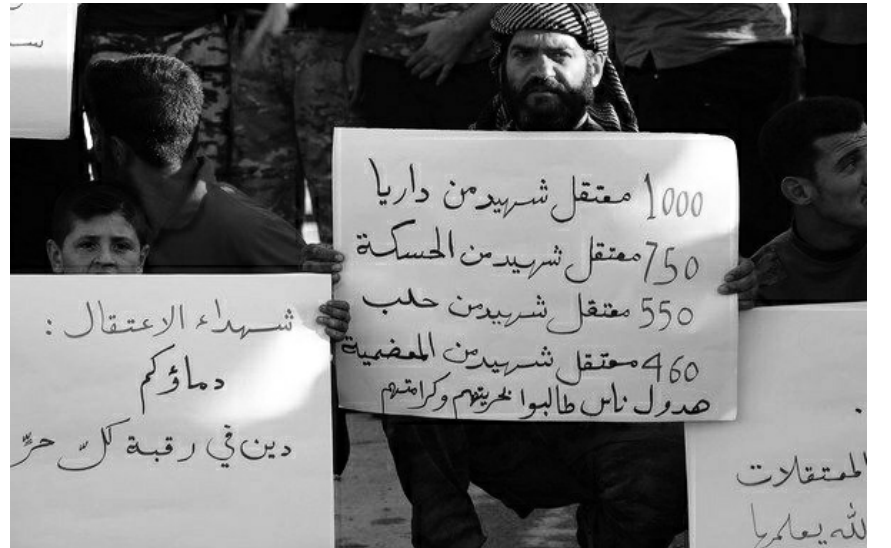 1000 معتقل شهيد من داريا
750 معتقل شهيد من الحسكة
550 معتقل شهيد من حلب
460 معتقل شهيد من المعضمية
هدول ناس طالبوا بحريتهم وكرامتهم
شهداء الاعتقال :
دماؤكم
دين في رقبة كلّ حرٍّ
المعتقلات
لله يعلمها